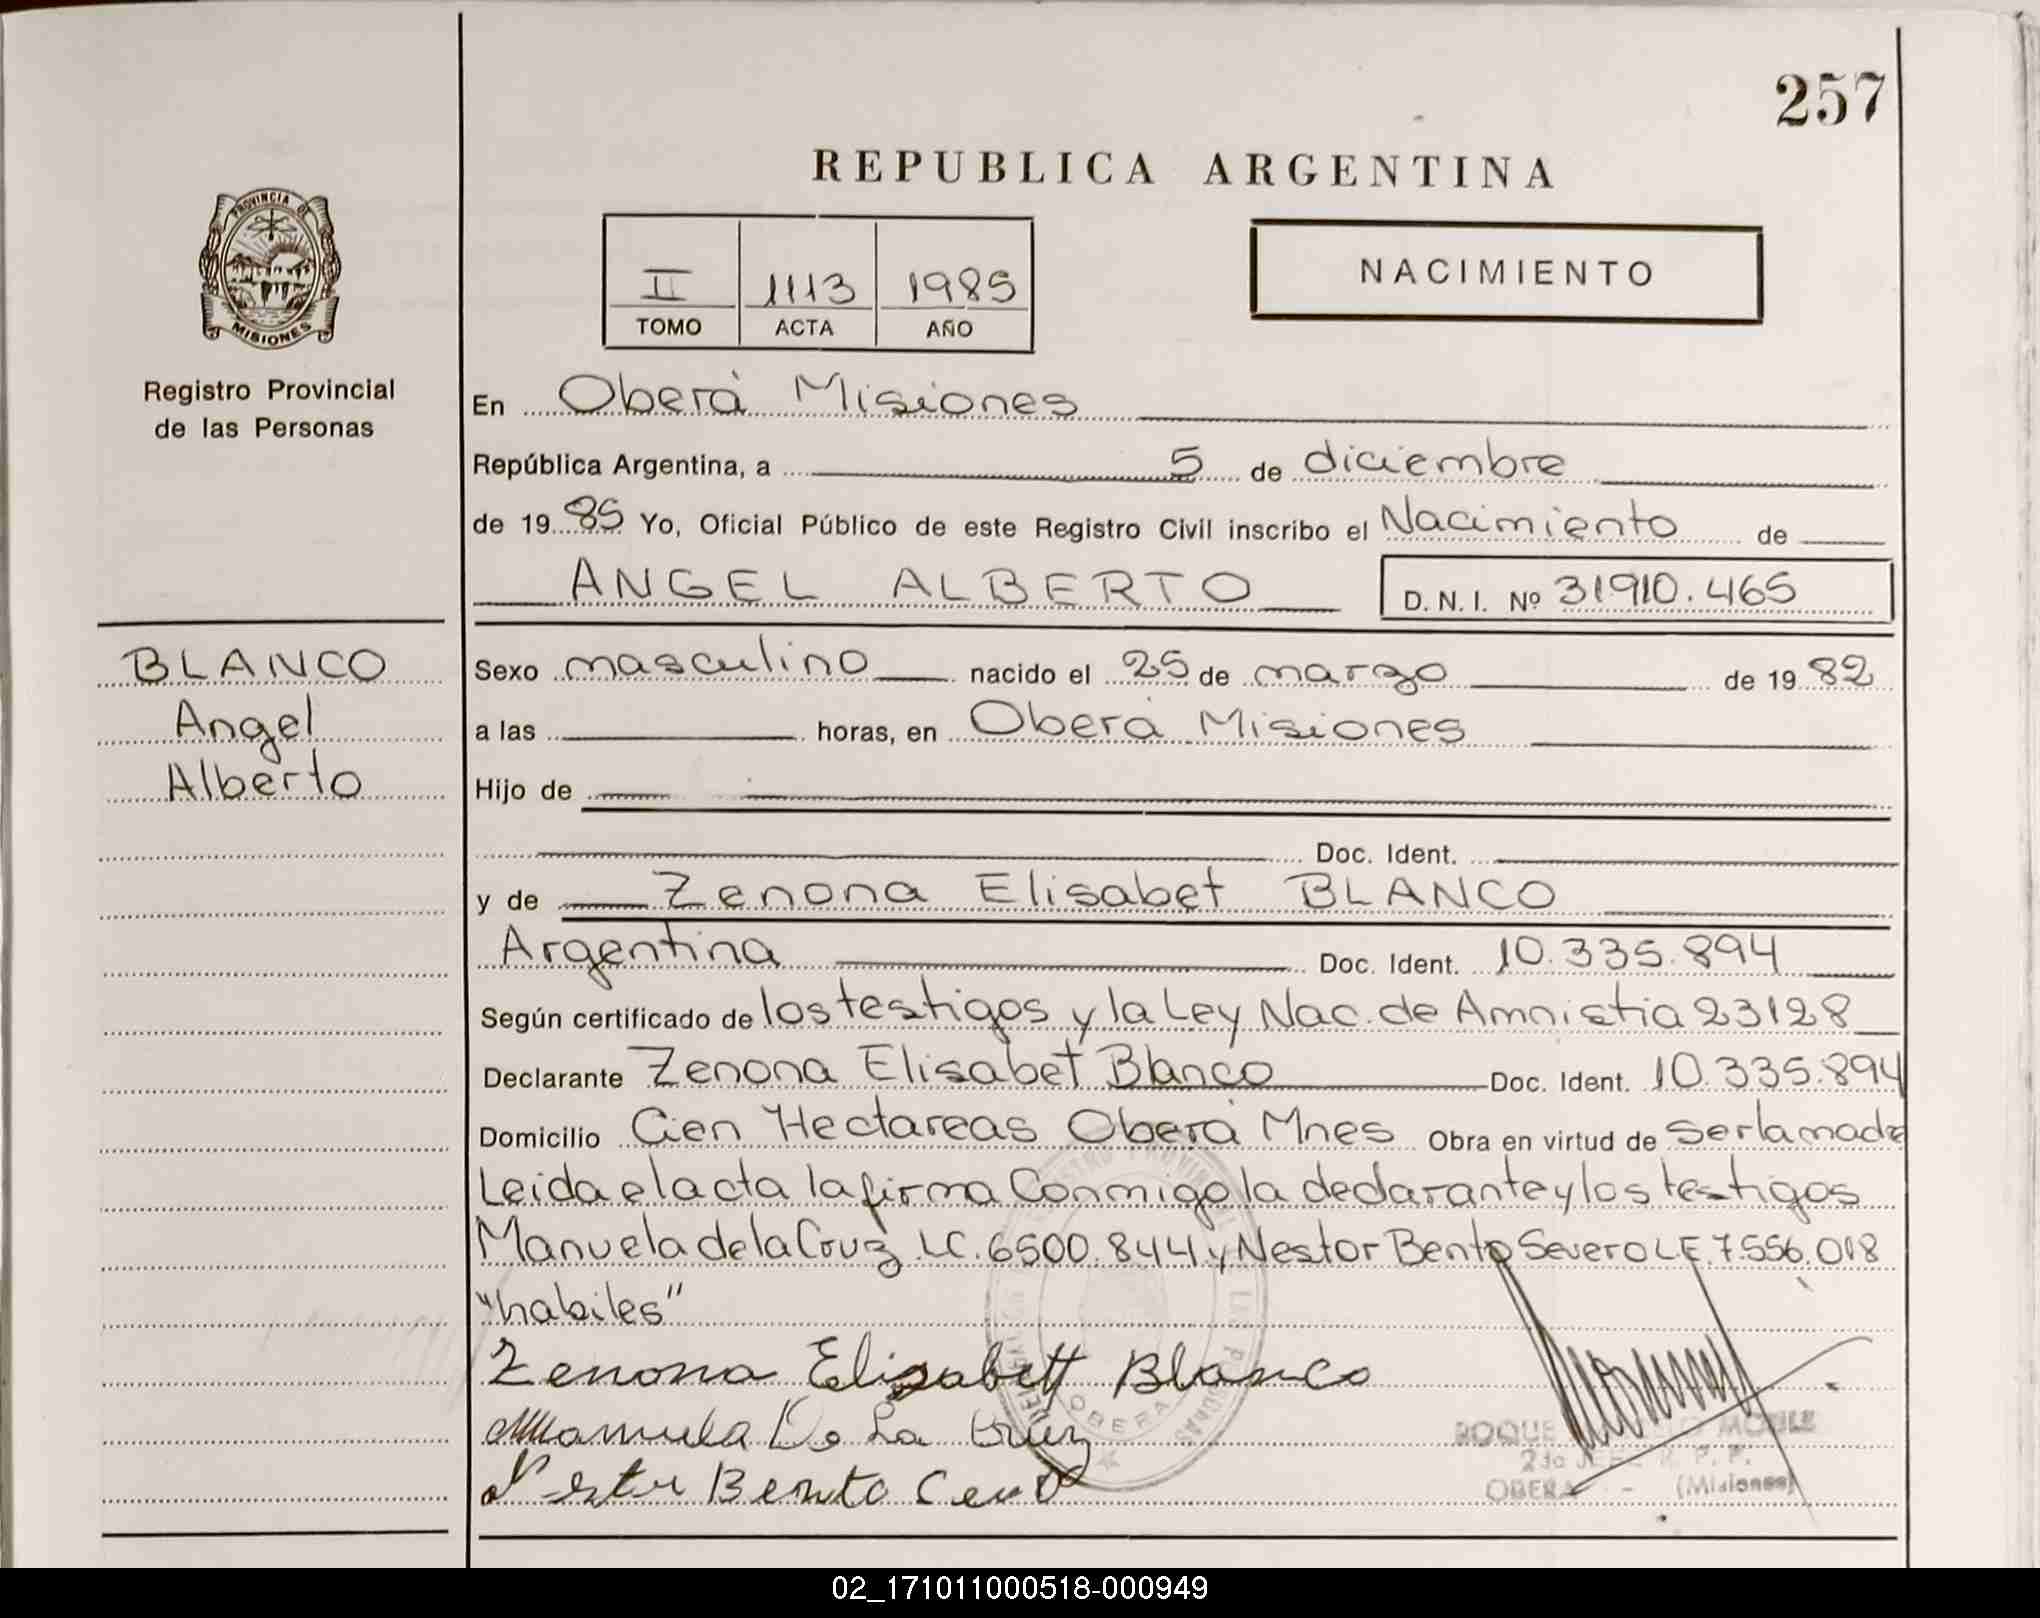 257
REPUBLICA ARGENTINA
PROVINCIA DE
MISIONES
Registro Provincial
de las Personas
II 1113 1985
TOMO ACTA AÑO
NACIMIENTO
En Oberá Misiones
República Argentina, a 5 de diciembre
de 1985 Yo, Oficial Público de este Registro Civil inscribo el Nacimiento de
ANGEL ALBERTO D.N.I. Nº 31910.465
BLANCO
Angel
Alberto
Sexo masculino nacido el 25 de marzo de 1982
a las horas, en Oberá Misiones
Hijo de
Doc. Ident.
y de Zenona Elisabet BLANCO
Argentina Doc. Ident. 10.335.894
Según certificado de los testigos y la Ley Nac. de Amnistia 23128
Declarante Zenona Elisabet Blanco Doc. Ident. 10.335.894
Domicilio Cien Hectareas Oberá Mnes Obra en virtud de ser la madre
Leida el acta la firma Conmigo la declarante y los testigos
Manuela de la Cruz LC. 6500.844 y Nestor Bento Severo LE 7.556.018
"habiles"
Zenona Elisabett Blanco
Manuela De La Cruz
Nestor Bento
ROQUE
2do JEFE R. P. P.
OBERA - (Misiones)
OBERA
02_171011000518-000949